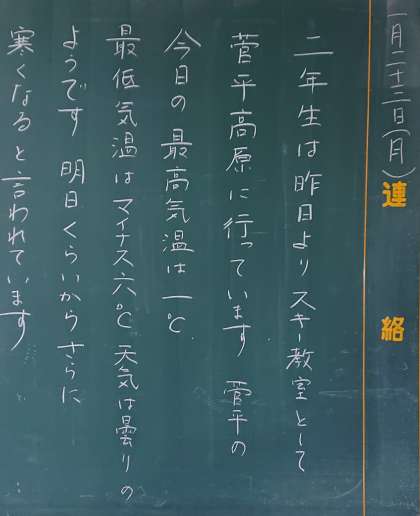 一月二十三日(月)
連絡
二年生は昨日よりスキー教室として
菅平高原に行っています 菅平の
今日の最高気温は一℃
最低気温はマイナス六℃ 天気は曇りの
ようです 明日くらいからさらに
寒くなると言われています